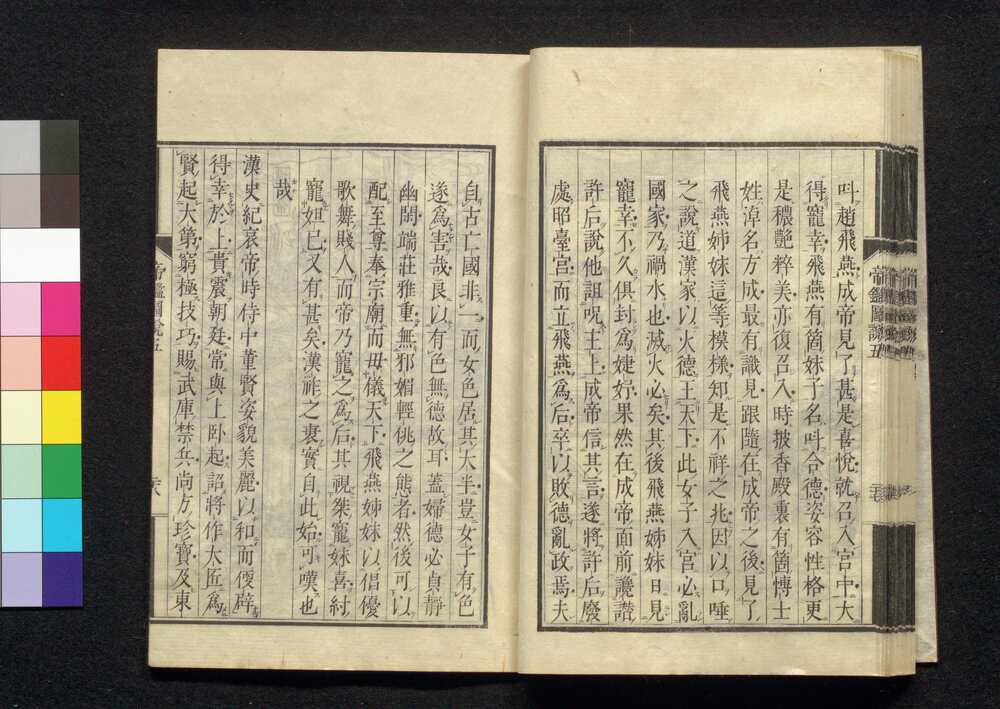 呌趙飛燕成帝見了甚是喜悅就召入宮中大
得寵幸飛燕有箇妹子名呌合德姿容性格更
是穠艷粹美亦復召入時披香殿裏有箇愽士
姓淖名方成最有識見跟隨在成帝之後見了
飛燕姊妹這等模様知是不祥之兆因以口唾
之說道漢家以火德王天下此女子入宮必亂
國家乃禍水也滅火必矣其後飛燕姊妹日見
寵幸不久俱封爲婕妤果然在成帝面前讒譖
許后說他詛呪主上成帝信其言遂將許后廢
處昭臺宮而立飛燕爲后卒以敗德亂政焉夫
帝鑑圖說五
自古亡國非一而女色居其大半豈女子有色
遂爲害哉良以有色無德故耳蓋婦德必貞靜
幽閒端莊雅重無邪媚輕佻之態者然後可以
配至尊奉宗廟而毋儀天下飛燕姊妹以倡優
歌舞賤人而帝乃寵之爲后其視桀寵妹喜紂
寵妲巳又有甚矣漢祚之衰實自此始可嘆也
哉
漢史紀哀帝時侍中董賢姿貌美麗以和而便辟
得幸於上貴震朝廷常與上卧起詔將作大匠爲
賢起大第窮極技巧賜武庫禁兵尚方珍寶及東
帝鑑圖說五